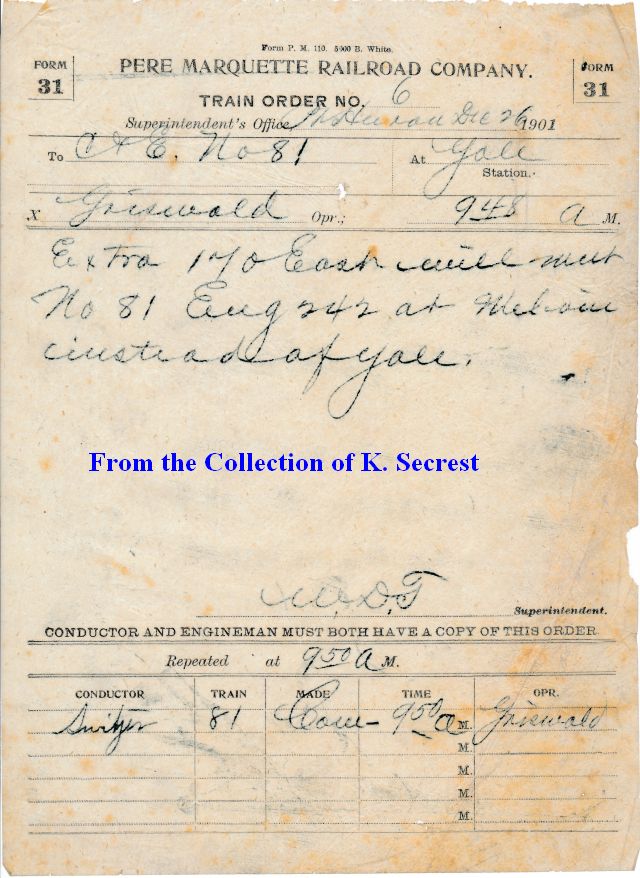 Form P. M. 110. 5400 B. White.
FORM 31
PERE MARQUETTE RAILROAD COMPANY.
FORM 31
TRAIN ORDER NO. 6
Superintendent's Office, Pt Huron Dec 26 1901
To C & E. No 81 At Yale Station.
X Griswald Opr.; 9 48 A M.
Extra 170 East will meet
No 81 Eng 242 at Melvin
instead of Yale.
From the Collection of K. Secrest
W. D. T. Superintendent.
CONDUCTOR AND ENGINEMAN MUST BOTH HAVE A COPY OF THIS ORDER
Repeated at 9 50 A M.
CONDUCTOR TRAIN MADE TIME OPR.
Switzer 81 Com- 9 50 a M. Griswald
M.
M.
M.
M.